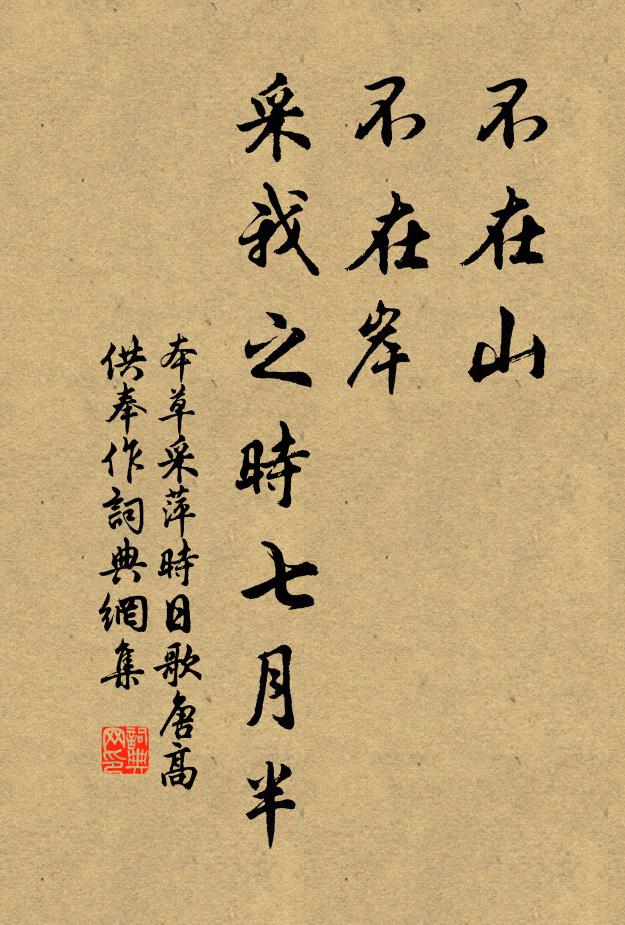 不在山
不在岸
采我之時七月半
本草采萍時日歌唐高
供奉作詞典網集
詞典
网印